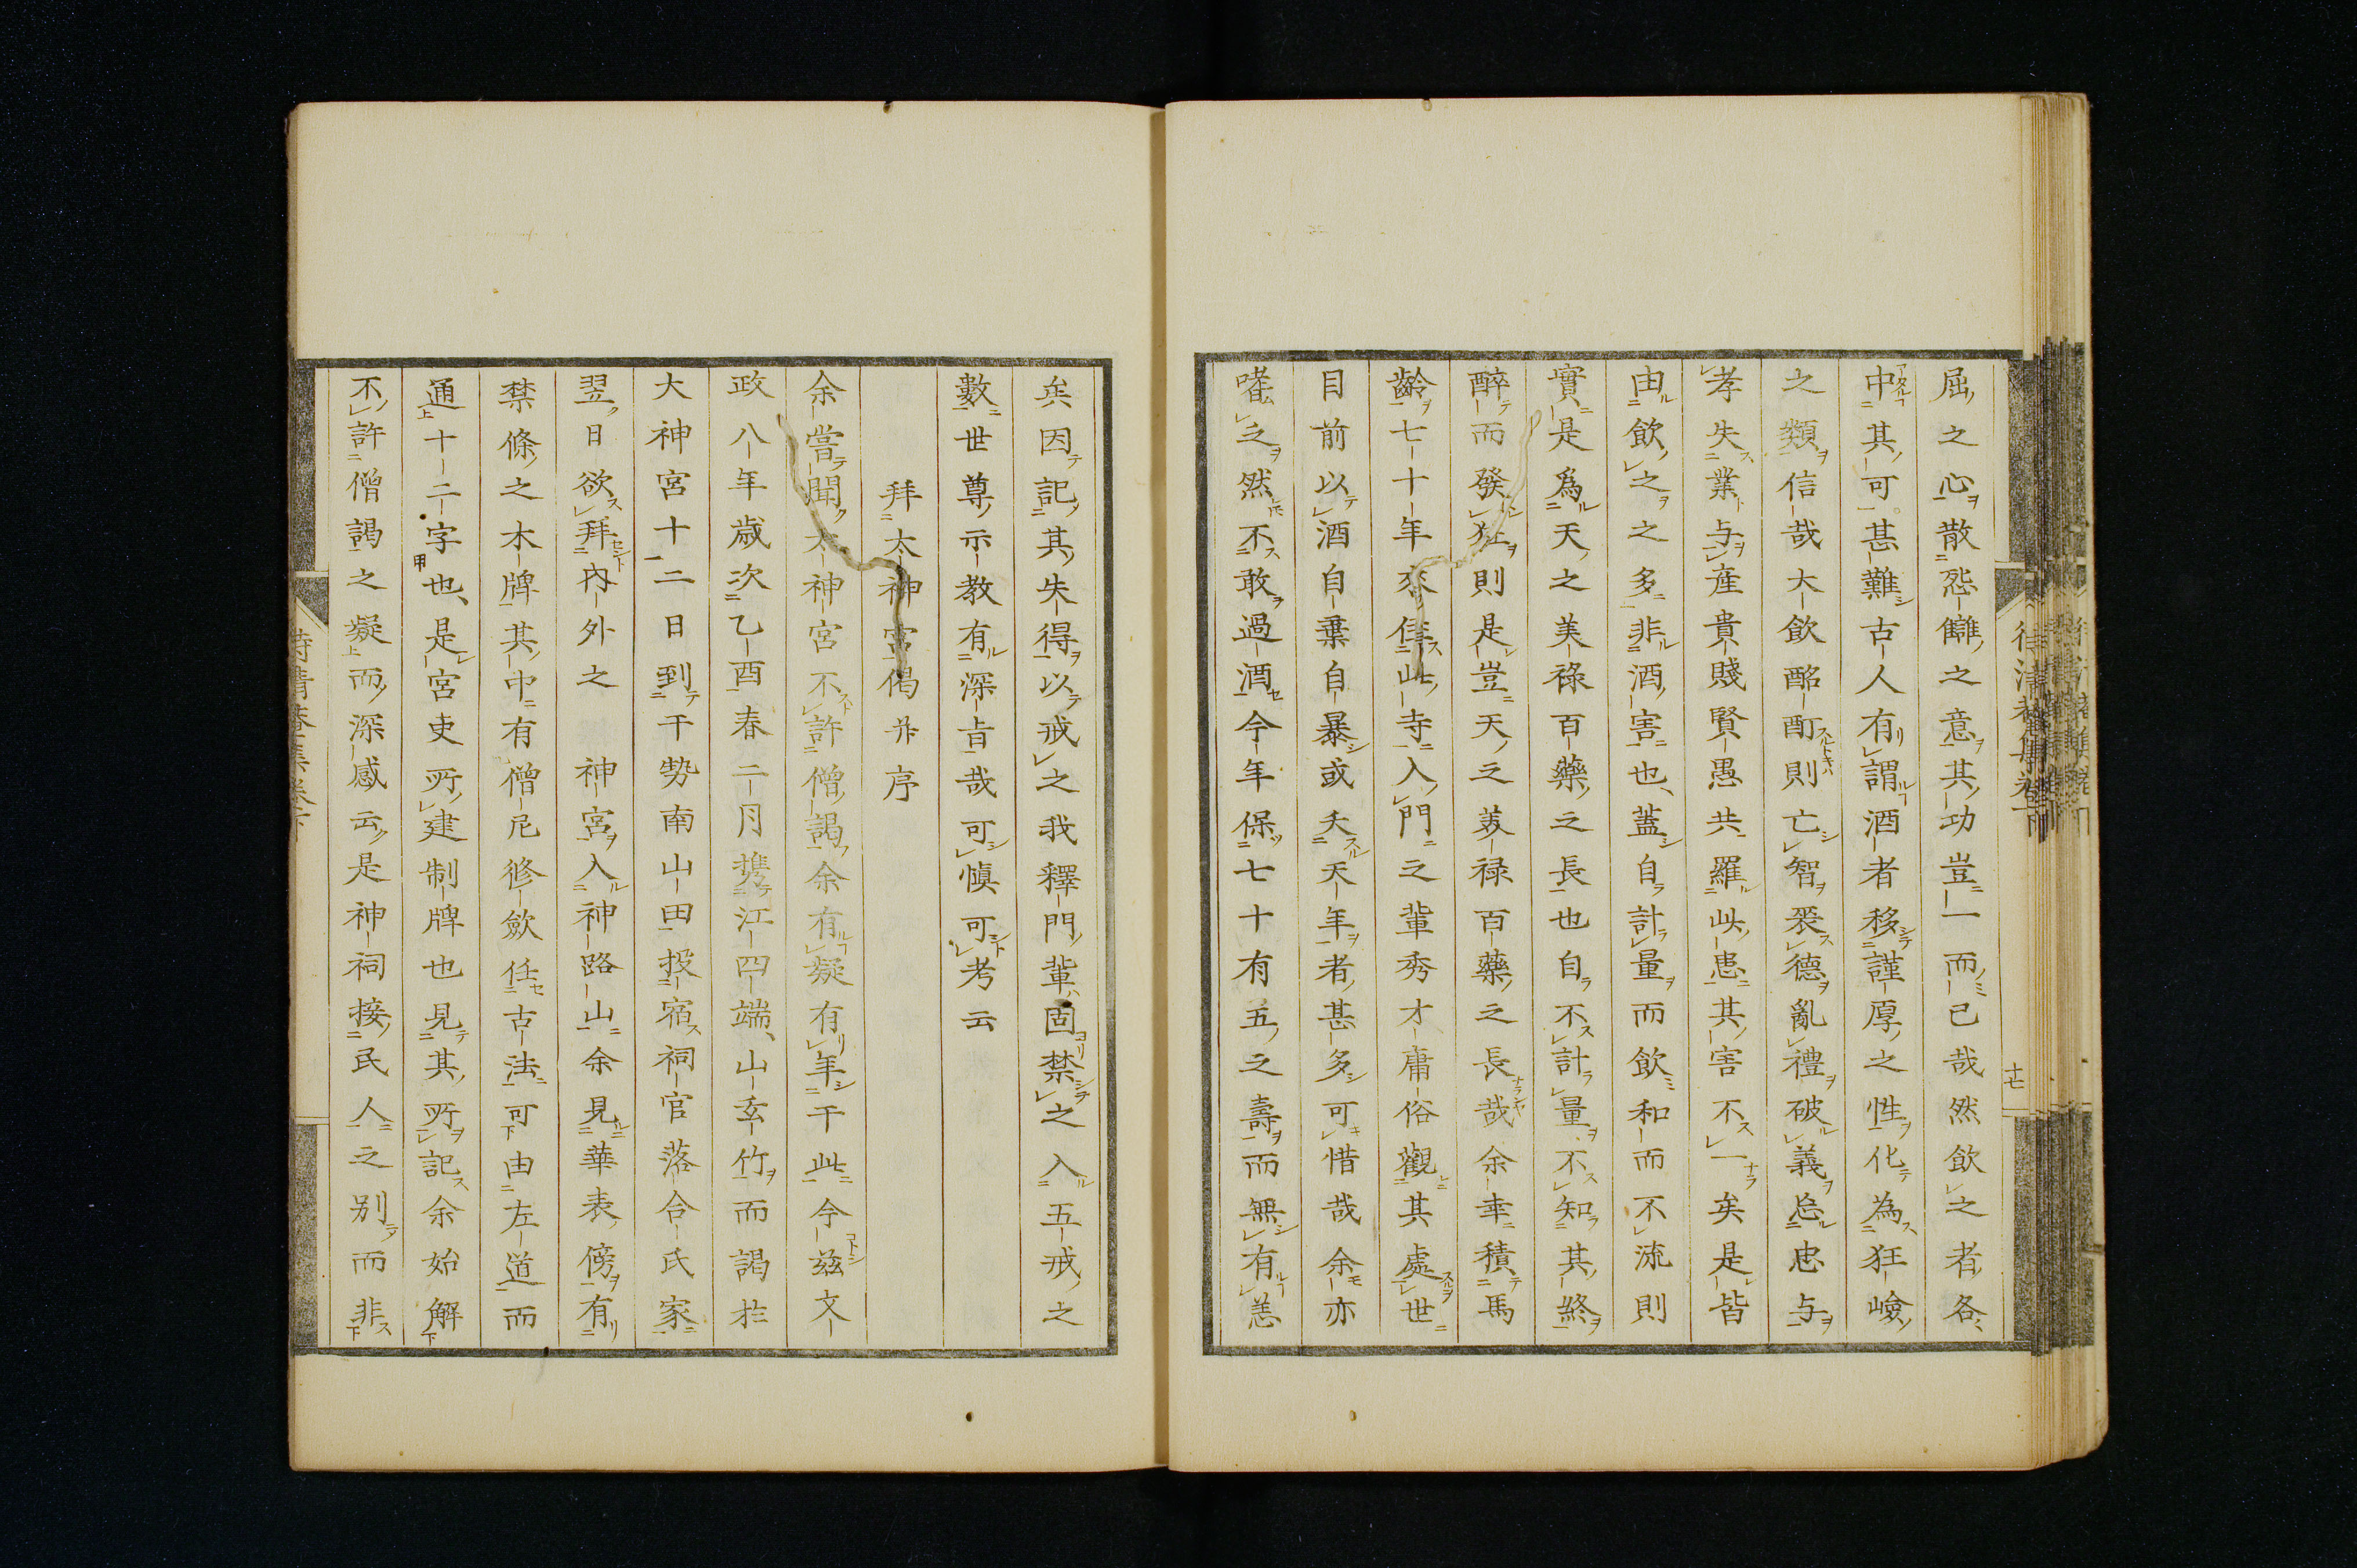 屈之心散怨讎之意其功豈一而已哉然飲之者各
中其可甚難古人有謂酒者移謹厚之性化為狂嶮
之類信哉大飲酩酊則亡智喪德亂禮破義忘忠与
孝失業与産貴賤賢愚共羅此患其害不一矣是皆
由飲之之多非酒害也蓋自計量而飲和而不流則
實是爲天之美祿百藥之長也自不計量不知其終
醉而發狂則是豈天之美禄百藥之長哉余幸積馬
齡七十年來住此寺入門之輩秀才庸俗觀其處世
目前以酒自棄自暴或夭天年者甚多可惜哉余亦
嗜之然不敢過酒今年保七十有五之壽而無有恙
十七
矣因記其失得以戒之我釋門輩固禁之入五戒之
數世尊示教有深旨哉可愼可考云
拜太神宮偈并序
余嘗聞太神宮不許僧謁余有疑有年于此今茲文
政八年歲次乙酉春二月携江四端山玄竹而謁於
大神宮十二日到于勢南山田投宿祠官落合氏家
翌日欲拜內外之神宮入神路山余見華表傍有
禁條之木牌其中有僧尼修歛任古法可由左道而
通十二字也是宮吏所建制牌也見其所記余始解
不許僧謁之疑而深感云是神祠接民人之別而非